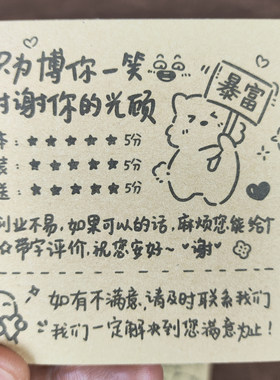 只为博你一笑
谢你的光顾
暴富
★★★★★ 5分
★★★★★ 5分
送：★★★★★ 5分
业不易，如果可以的话，麻烦您能给
带字评价，祝您安好~谢
如有不满意，请及时联系我们
我们一定解决到您满意为止！